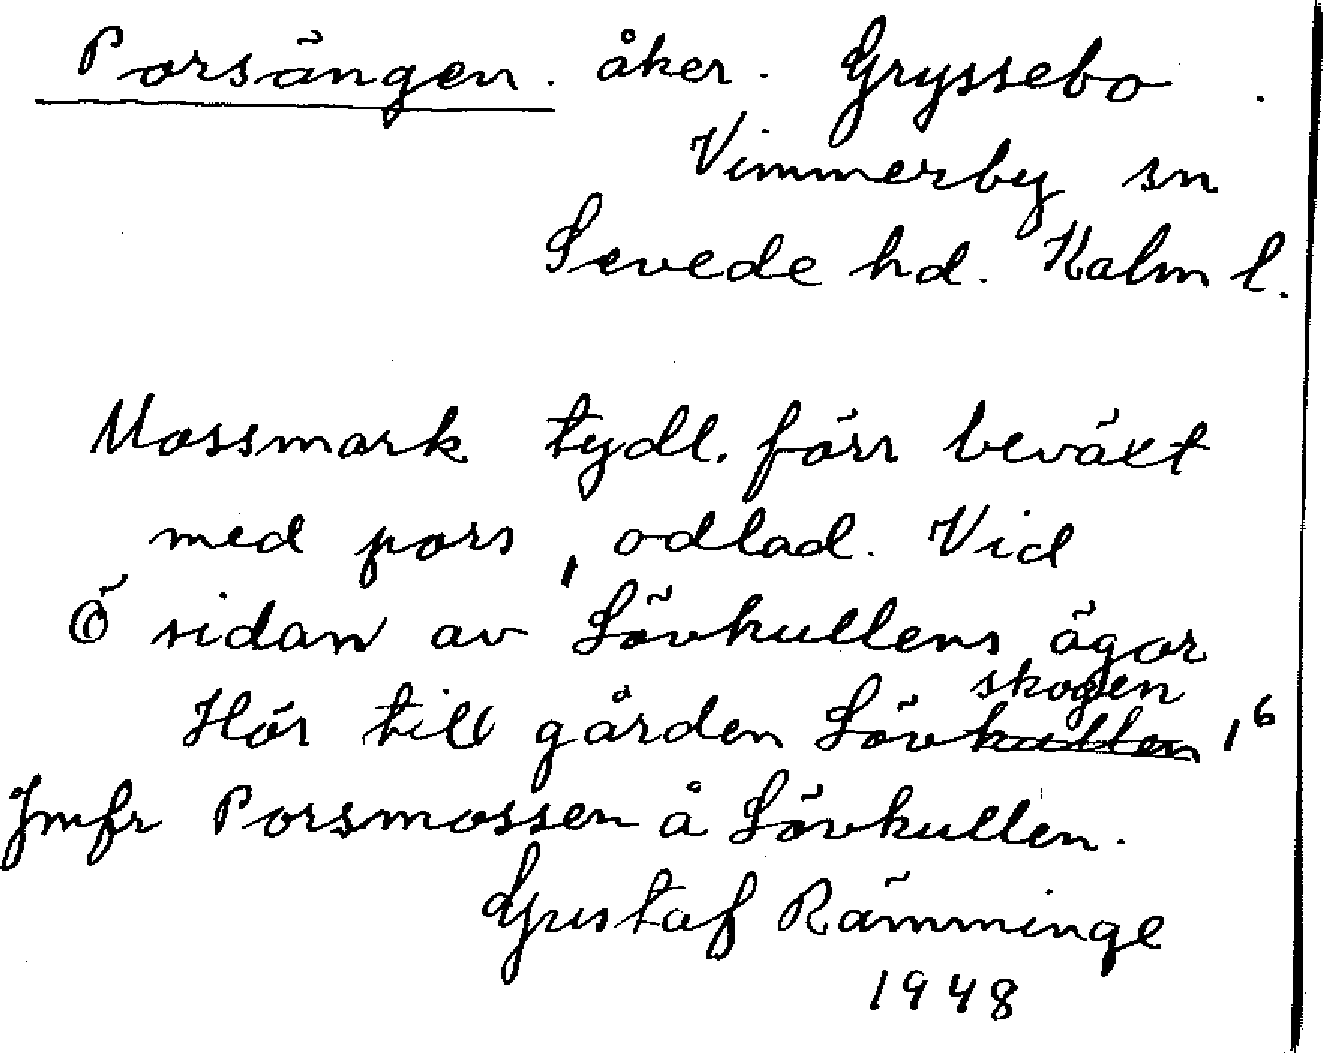 Porsängen. åker. Gryssebo.
Vimmerby sn
Sevede hd. Kalm l.
Mossmark tydl. förr beväxt
med pors, odlad. Vid
Ö sidan av Lövkullens ägor
skogen
Hör till gården Lövkullen 1⁶
Jmfr Porsmossen å Lövkullen.
Gustaf Rämminge
1948